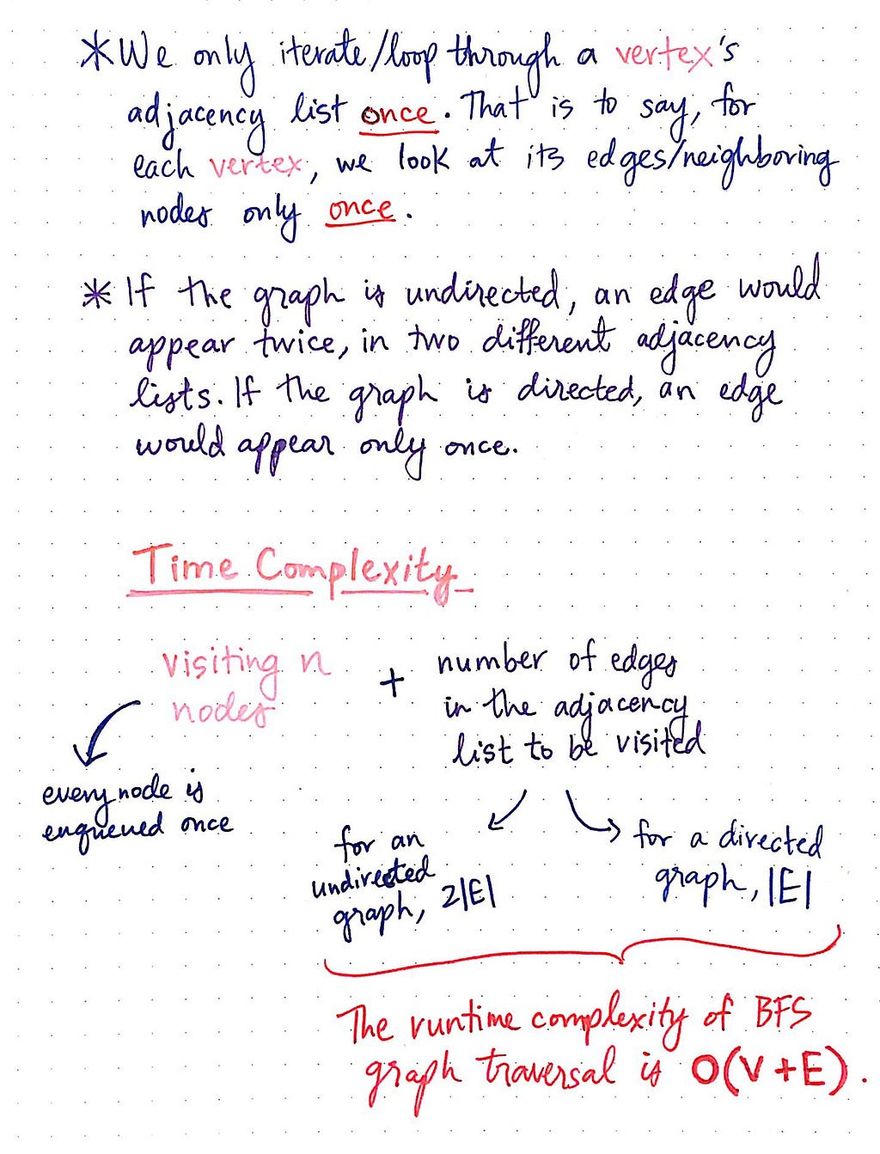 *We only iterate/loop through a vertex's
adjacency list once. That is to say, for
each vertex, we look at its edges/neighboring
nodes only once.
* If the graph is undirected, an edge would
appear twice, in two different adjacency
lists. If the graph is directed, an edge
would appear only once.
Time Complexity
visiting n
nodes
+
number of edges
in the adjacency
list to be visited
every node is
enqueued once
for an
undirected
graph, 2|E|
for a directed
graph, |E|
The runtime complexity of BFS
graph traversal is O(V+E).